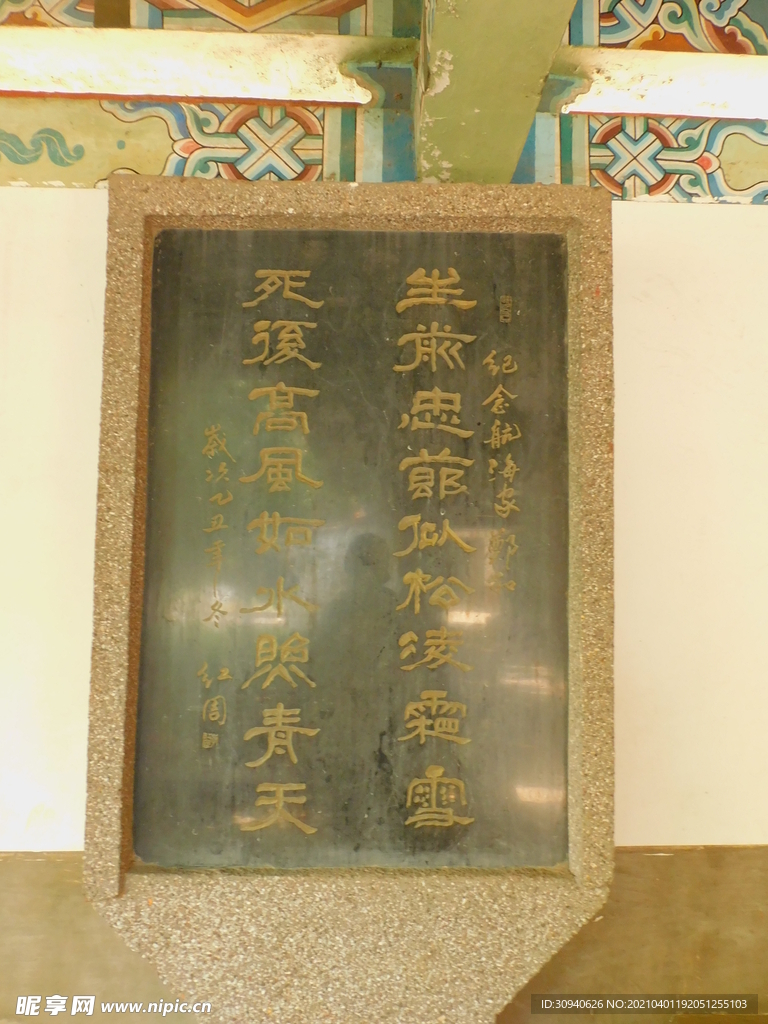 紀念航海家鄭和
生前忠節似松淩霜雪
死後高風如水照青天
歲次乙丑年冬 紅周
昵享网 www.nipic.cn
ID:30940626 NO:20210401192051255103